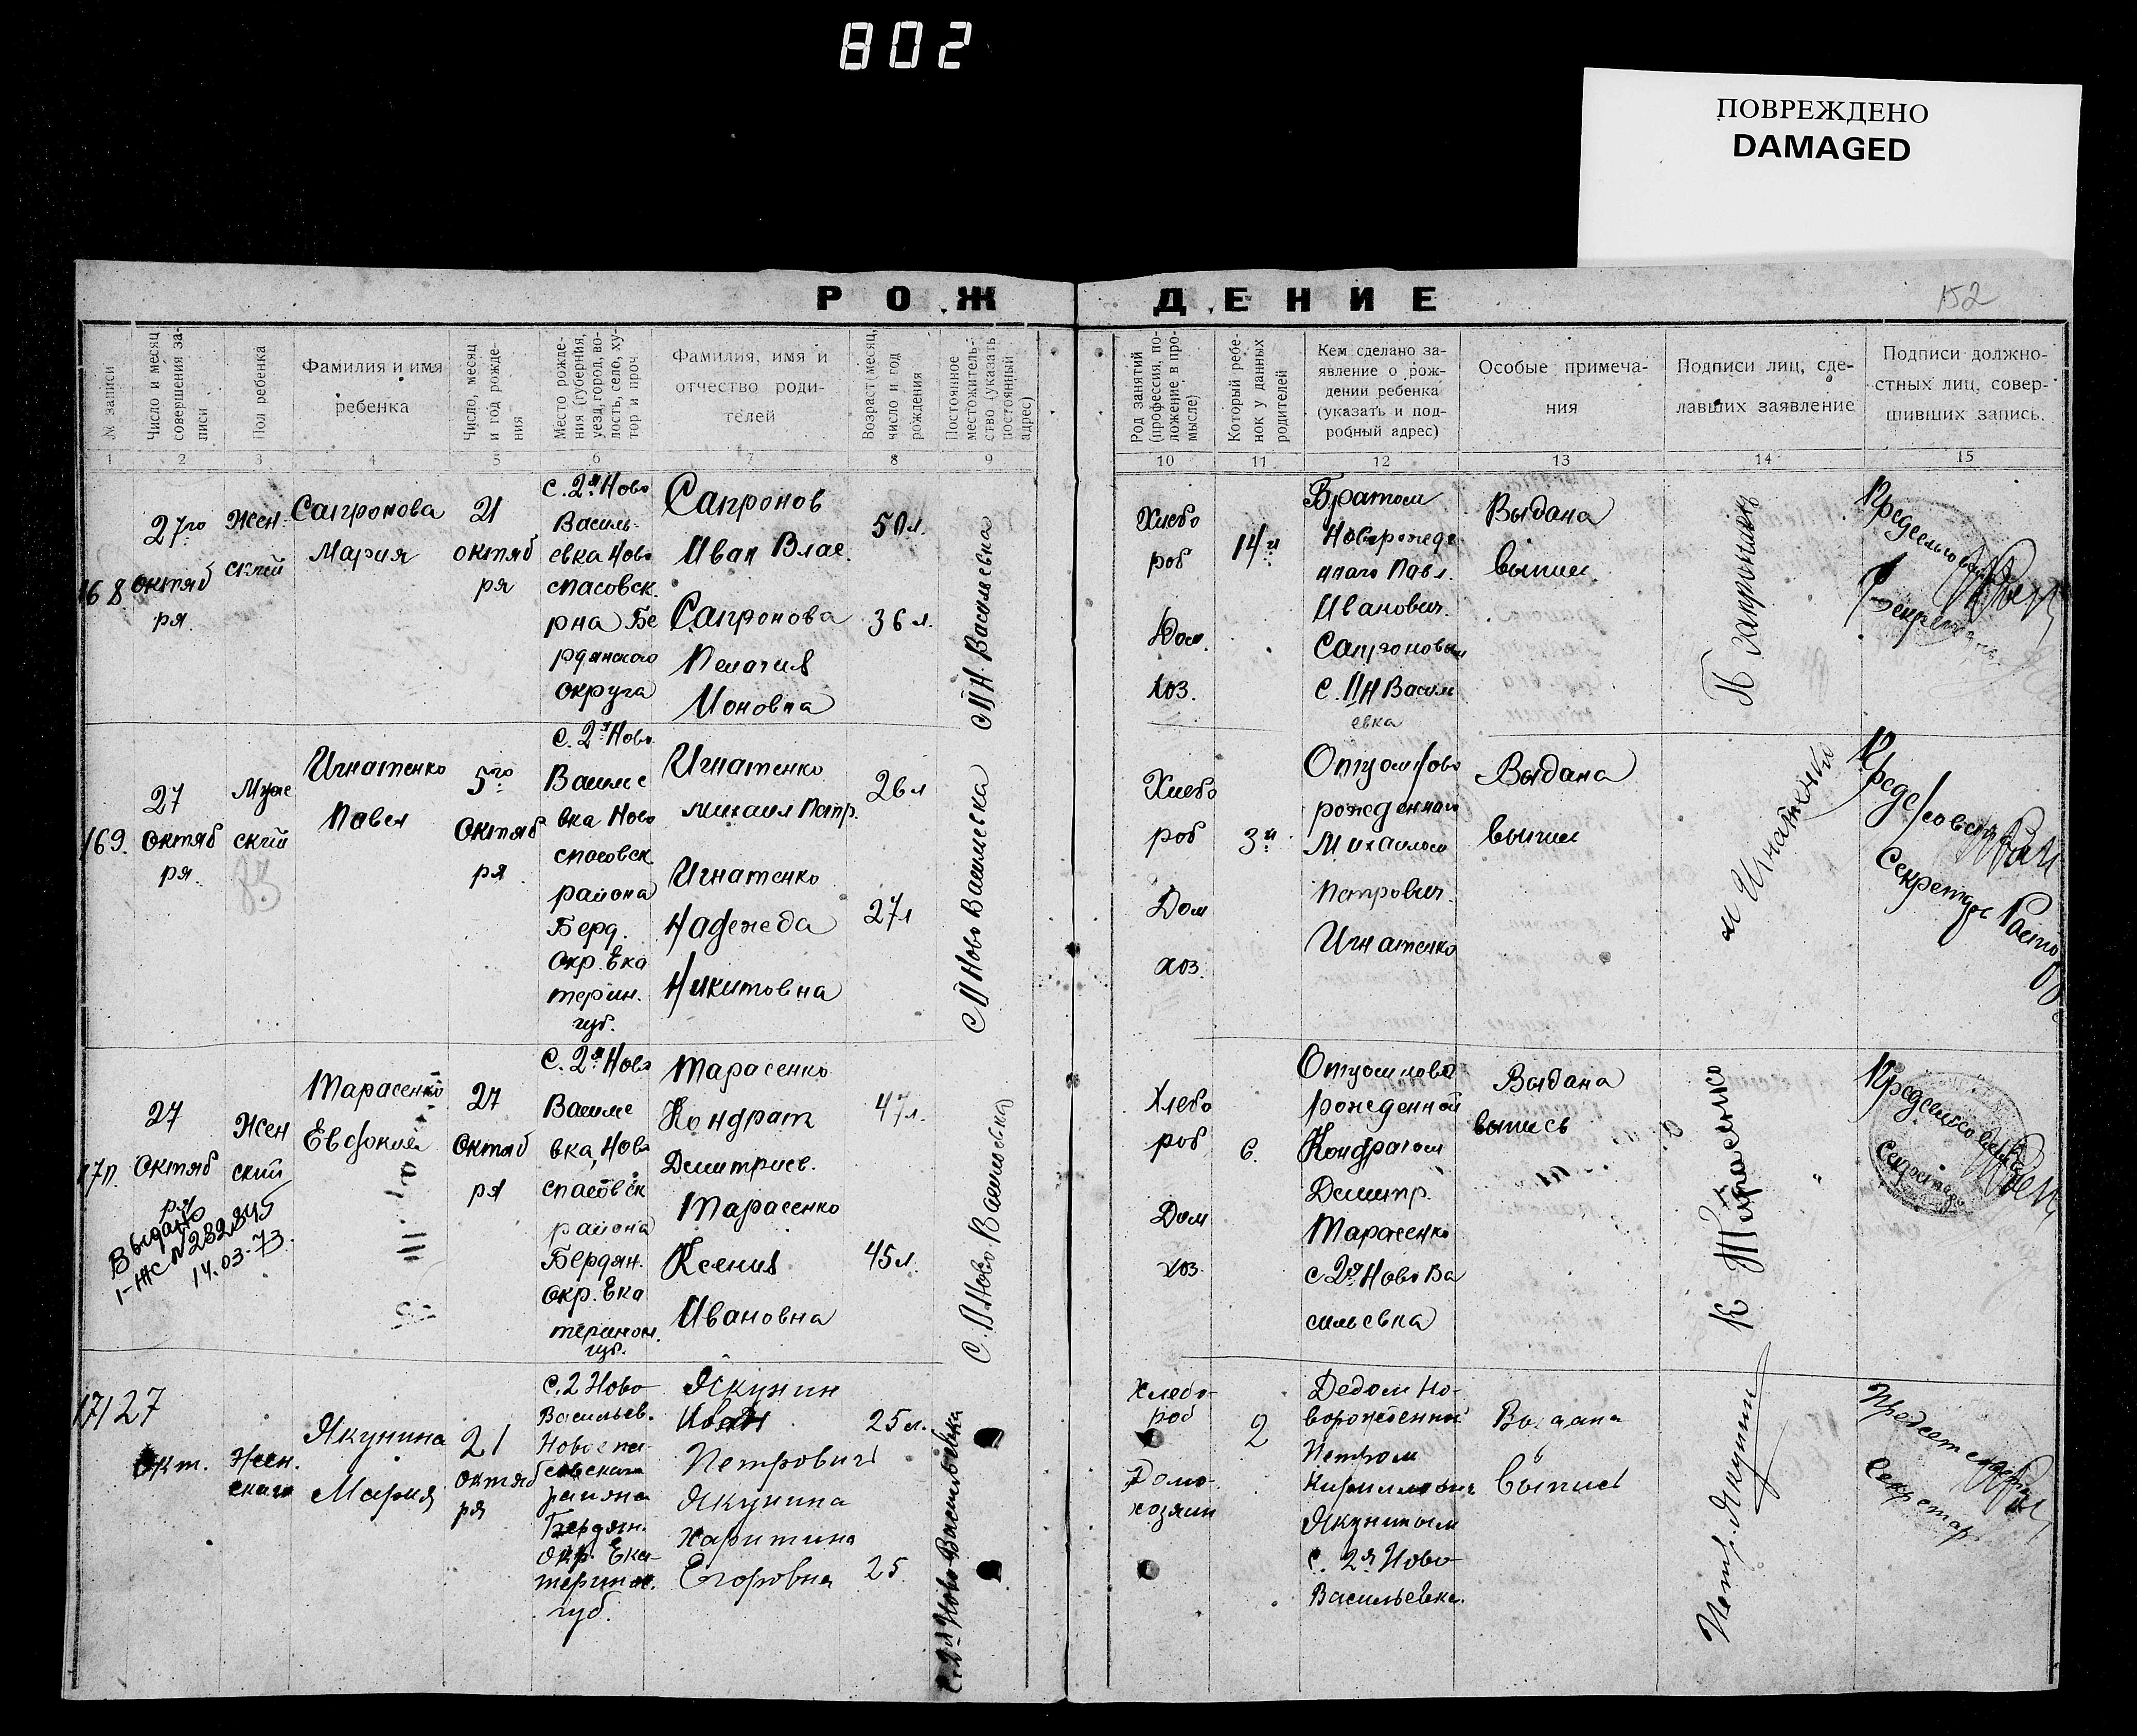 802
ПОВРЕЖДЕНО
DAMAGED
152
РОЖДЕНИЕ
№ записи
Число и месяц совершения записи
Пол ребенка
Фамилия и имя
ребенка
Число, месяц и год рождения
Место рождения (губерния, уезд, город, волость, село, хутор и проч
Фамилия, имя и
отчество роди-
телей
Возраст месяц, число и год рождения
Постоянное местожительство (указать постоянный адрес)
Род занятий (профессия, положение в промысле)
Который ребенок у данных родителей
Кем сделано за-
явление о рож-
дении ребенка
(указать и под-
робный адрес)
Особые примеча-
ния
Подписи лиц, сде-
лавших заявление
Подписи должно-
стных лиц, совер-
шивших запись.
1 2 3 4 5 6 7 8 9 10 11 12 13 14 15
168
27го
октяб
ря.
Жен-
ский
Сапронова
Мария
21
октяб
ря
с. 2я Ново
Василь-
евка Ново
спасовск.
рна Бе
рдянского
округа
Сапронов
Иван Влас.
Сапронова
Пелагия
Ионовна
50 л.
36 л.
с II Н. Васильевка
Хлебо
роб
Дом.
хоз.
14й
Братом
Новорожде
нного Павл.
Иванович.
Сапроновым
с. II Н Василь
евка
Выдана
выпис.
П Запронов
Предсельсовета
Секретарь
169.
27
октяб
ря.
Муже
ский
83
Игнатенко
Павел
5го
Октяб
ря
с. 2я Ново
Василье
вка Ново
спасовск.
района
Берд.
Окр. Ека
терин.
губ.
Игнатенко
Михаил Петр.
Игнатенко
Надежда
Никитовна
26 л
27 л
с II Ново Васильевка
Хлебо
роб
Дом
хоз.
3й
Отцом Ново
рожденного
Михаилом
Петрович.
Игнатенко
Выдана
выпис
м Игнатенко
Предс/совета
Секретарь
170.
27
Октяб
ря
Жен
ский
Выдано
I-ЖС N 232845
14.03-73.
Тарасенко
Евфокия
27
Октяб
ря
с. 2я Ново
Василье
вка, Ново
спасовск
района
Бердян.
окр. Ека
теринос.
губ.
Тарасенко
Кондрат
Дмитриев.
Тарасенко
Ксения
Ивановна
47 л.
45 л.
с. II Ново Васильевка
Хлебо
роб
Дом
хоз.
6.
Отцом ново
рожденной
Кондратом
Дмитр.
Тарасенко
с 2я Ново Ва
сильевка
Выдана
выпись
К Тарасенко
Предсельсовета
Секретарь
171
27
Окт.
Жен.
ского
Якунина
Мария
21
октяб
ря
с. 2 Ново
Васильев.
Новоспа-
совского
района
Бердян.
Окр. Ека-
теринос.
губ.
Якунин
Иван
Петрович
Якунина
Харитина
Егоровна
25 л.
25
с. 2я Ново-Васильевка
Хлебо-
роб
Домо-
хозяин
2
Дедом но-
ворожденной
Петром
Кирилловичем
Якуниным
с. 2я Ново-
Васильевка.
Выдана
выпись
Петр. Якунин
Председ
Секретарь